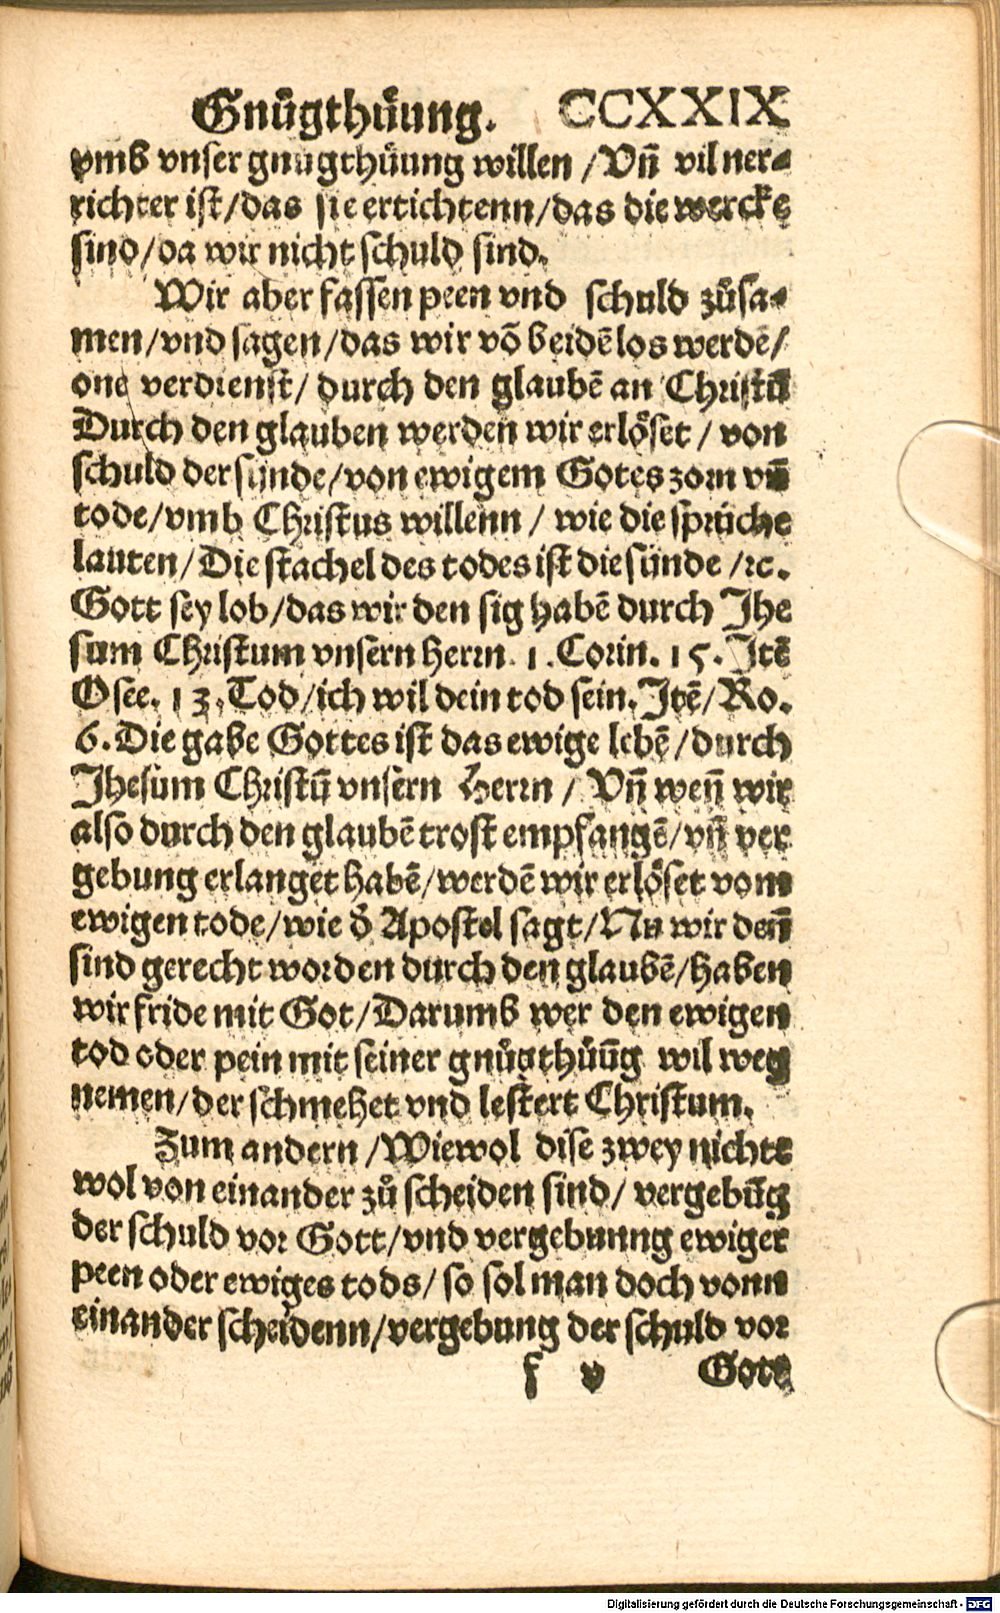 Gnuͤgthuͤung. CCXXIX
vmb vnser gnuͤgthuͤung willen / Vn̄ vil ner⸗
richter ist / das sie ertichtenn / das die wercke
sind / da wir nicht schuld sind.
Wir aber fassen peen vnd schuld zuͦsa⸗
men / vnd sagen / das wir võ beidẽ los werdẽ /
one verdienst / durch den glaubẽ an Christũ
Durch den glauben werden wir erloͤset / von
schuld der suͤnde / von ewigem Gotes zorn vn̄
tode / vmb Christus willenn / wie die spruͤche
lauten / Die stachel des todes ist die suͤnde / ꝛc.
Gott sey lob / das wir den sig habẽ durch Jhe
sum Christum vnsern Herrn. 1. Corin. 15. Jtẽ
Osee. 13. Tod / ich wil dein tod sein. Jtẽ / Ro.
6. Die gabe Gottes ist das ewige lebẽ / durch
Jhesum Christũ vnsern Herrn / Vn̄ wen̄ wir
also durch den glaubẽ trost empfangẽ / vn̄ ver
gebung erlanget habẽ / werdẽ wir erloͤset vom
ewigen tode / wie d̓ Apostel sagt / Nu wir den̄
sind gerecht worden durch den glaubẽ / haben
wir fride mit Got / Darumb wer den ewigen
tod oder pein mit seiner gnuͤgthuͤũg wil weg
nemen / der schmehet vnd lestert Christum.
Zum andern / Wiewol dise zwey nichts
wol von einander zuͦ scheiden sind / vergebũg
der schuld vor Gott / vnd vergebunng ewiger
peen oder ewiges tods / so sol man doch vonn
einander scheidenn / vergebung der schuld vor
f v Gote
Digitalisierung gefördert durch die Deutsche Forschungsgemeinschaft - DFG